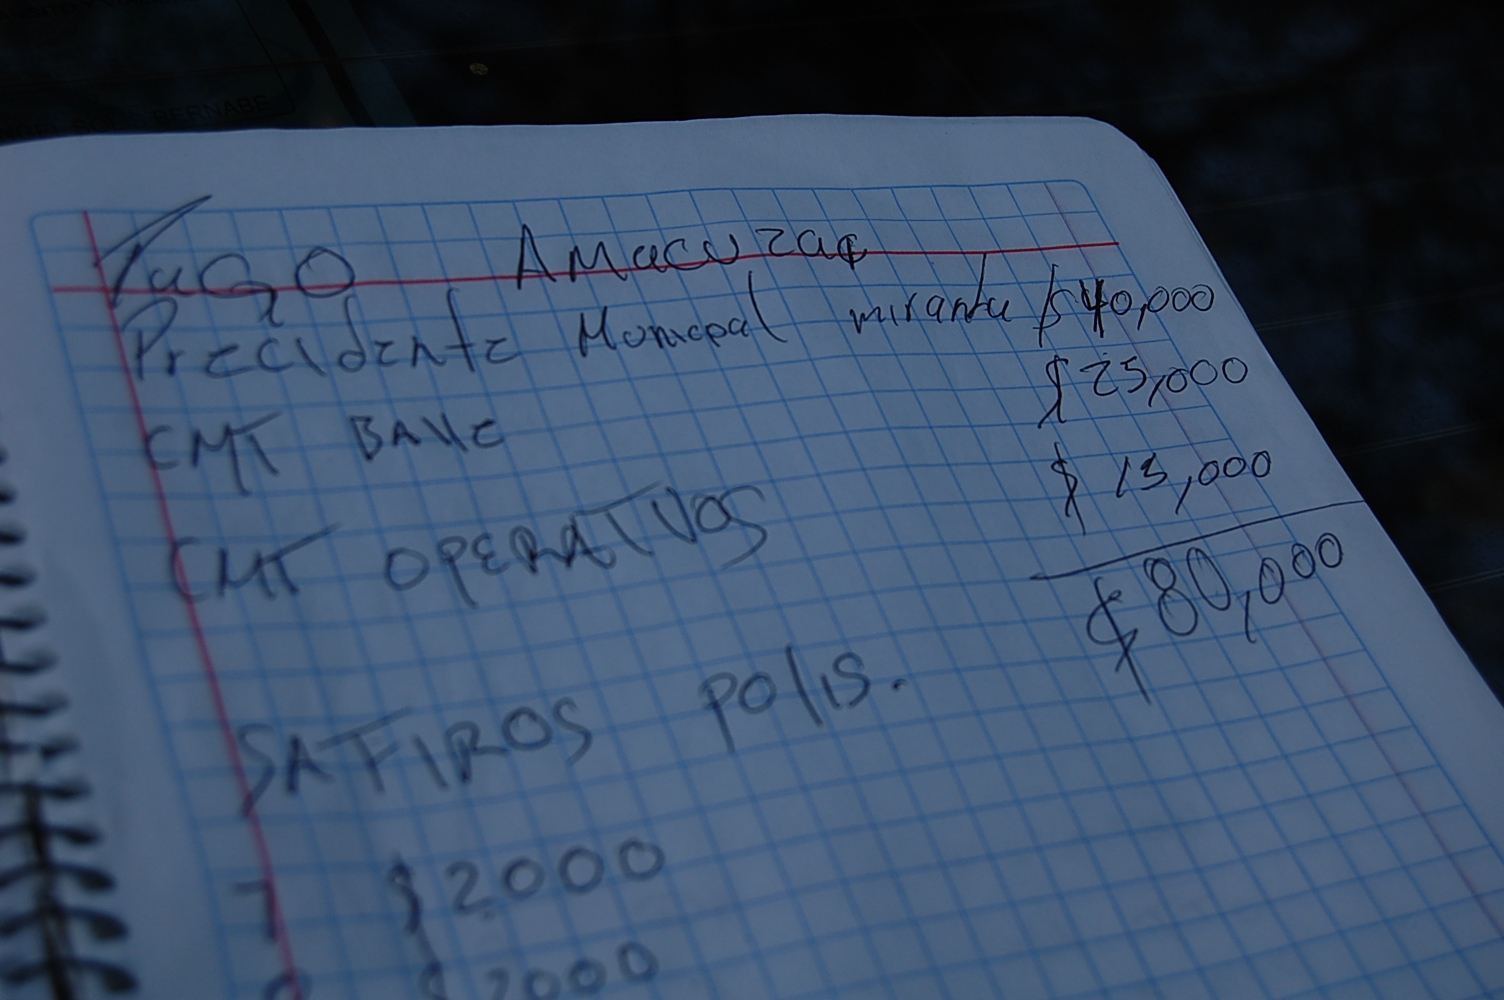 BERNABE
PAGO AMACUZAC
Precidente Municpal miranda $40,000
CMT BAVE $25,000
CMT OPERATIVOS $ 15,000
$80,000
SATIROS polis.
7 $2000
$2000